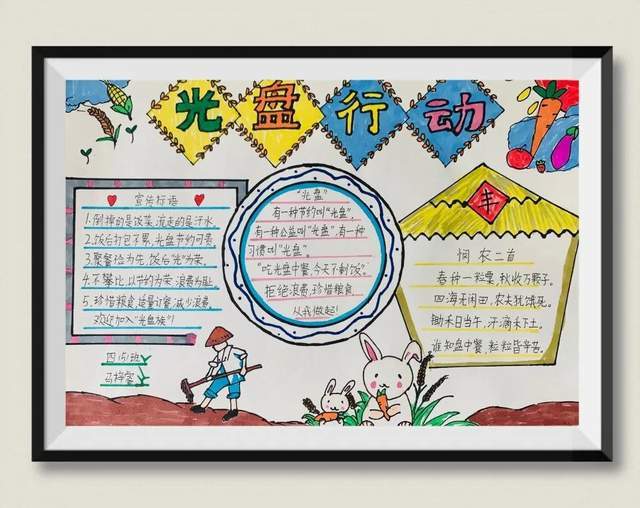 光盘行动
宣传标语
1.倒掉的是饭菜,流走的是汗水
2.饭后打包不累,光盘节约可贵
3.聚餐俭为先,饭后"光"为荣.
4.不攀比,以节约为荣,浪费为耻
5.珍惜粮食,适量订餐,减少浪费
欢迎加入"光盘族"!
四(5)班
"光盘"
有一种节约叫"光盘",
有一种公益叫"光盘",有一种
习惯叫"光盘".
"吃光盘中餐,今天不剩饭".
拒绝浪费,珍惜粮食
从我做起!
丰
悯农二首
春种一粒粟,秋收万颗子.
四海无闲田,农夫犹饿死.
锄禾日当午,汗滴禾下土.
谁知盘中餐,粒粒皆辛苦.